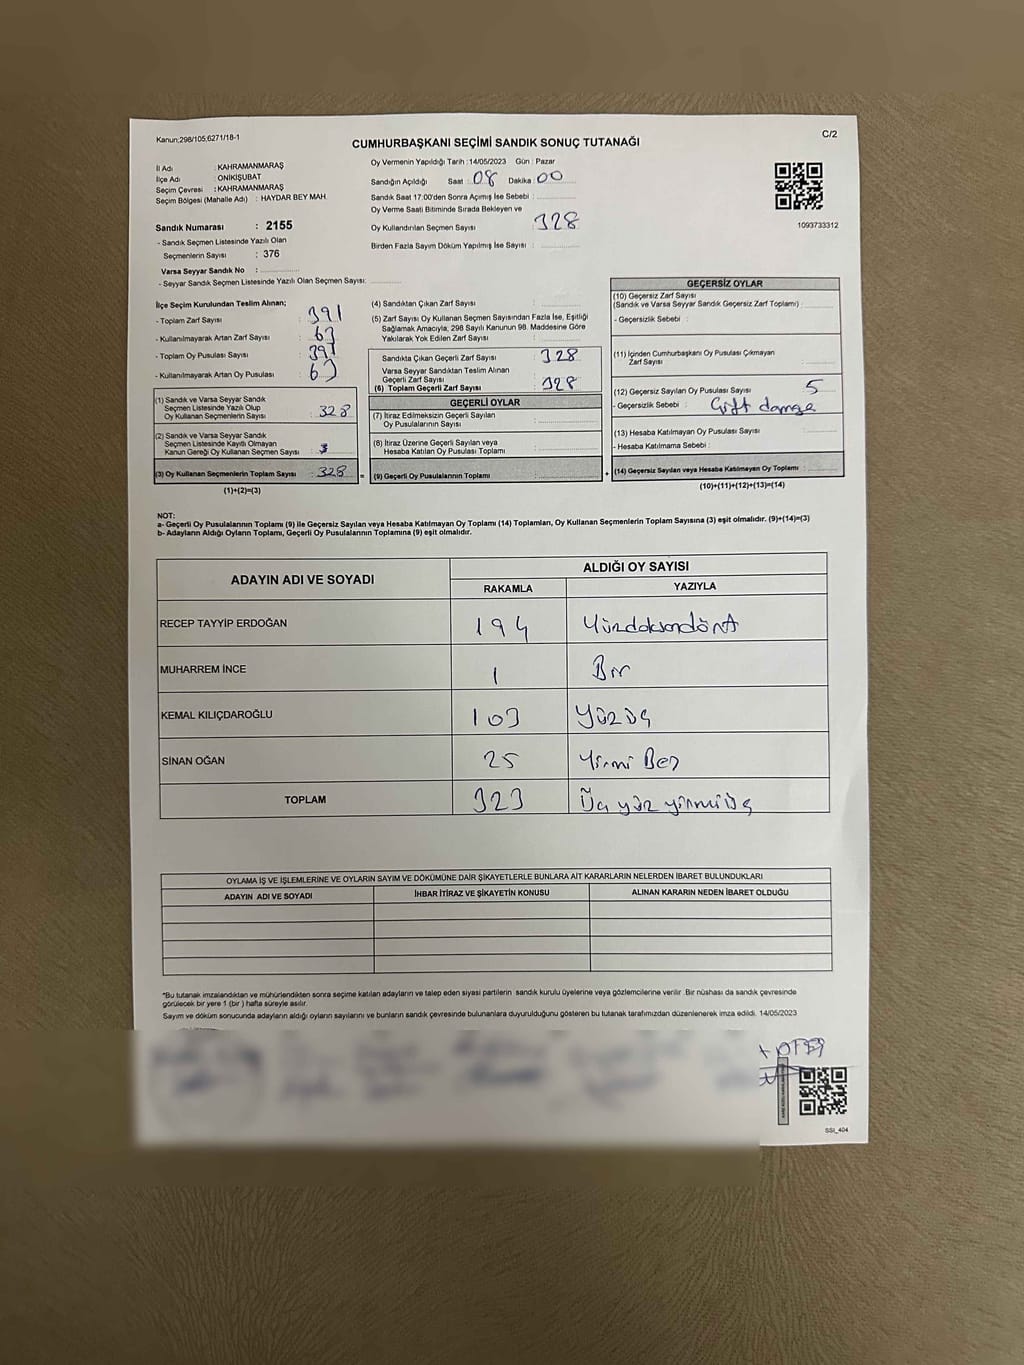 Kanun:298/105,6271/18-1
C/2
CUMHURBAŞKANI SEÇİMİ SANDIK SONUÇ TUTANAĞI
İl Adı : KAHRAMANMARAŞ
İlçe Adı : ONİKİŞUBAT
Seçim Çevresi : KAHRAMANMARAŞ
Seçim Bölgesi (Mahalle Adı) : HAYDAR BEY MAH
Sandık Numarası : 2155
- Sandık Seçmen Listesinde Yazılı Olan
Seçmenlerin Sayısı : 376
Varsa Seyyar Sandık No :
- Seyyar Sandık Seçmen Listesinde Yazılı Olan Seçmen Sayısı:
Oy Vermenin Yapıldığı Tarih :14/05/2023 Gün : Pazar
Sandığın Açıldığı Saat : 08 Dakika 00
Sandık Saat 17:00'den Sonra Açımış İse Sebebi :
Oy Verme Saati Bitiminde Sırada Bekleyen ve
Oy Kullandırılan Seçmen Sayısı : 328
Birden Fazla Sayım Döküm Yapılmış İse Sayısı :
1093733312
İlçe Seçim Kurulundan Teslim Alınan;
- Toplam Zarf Sayısı : 391
- Kullanılmayarak Artan Zarf Sayısı : 63
- Toplam Oy Pusulası Sayısı : 391
- Kullanılmayarak Artan Oy Pusulası : 63
(1) Sandık ve Varsa Seyyar Sandık
Seçmen Listesinde Yazılı Olup
Oy Kullanan Seçmenlerin Sayısı : 328
(2) Sandık ve Varsa Seyyar Sandık
Seçmen Listesinde Kayıtlı Olmayan
Kanun Gereği Oy Kullanan Seçmen Sayısı :
(3) Oy Kullanan Seçmenlerin Toplam Sayısı : 328
(1)+(2)=(3)
(4) Sandıktan Çıkan Zarf Sayısı :
(5) Zarf Sayısı Oy Kullanan Seçmen Sayısından Fazla İse, Eşitliği
Sağlamak Amacıyla, 298 Sayılı Kanunun 98. Maddesine Göre
Yakılarak Yok Edilen Zarf Sayısı :
Sandıkta Çıkan Geçerli Zarf Sayısı : 328
Varsa Seyyar Sandıktan Teslim Alınan
Geçerli Zarf Sayısı
(6) Toplam Geçerli Zarf Sayısı : 328
GEÇERLİ OYLAR
(7) İtiraz Edilmeksizin Geçerli Sayılan
Oy Pusulasının Sayısı :
(8) İtiraz Üzerine Geçerli Sayılan veya
Hesaba Katılan Oy Pusulası Toplamı :
= (9) Geçerli Oy Pusulalarının Toplamı : +
GEÇERSİZ OYLAR
(10) Geçersiz Zarf Sayısı
(Sandık ve Varsa Seyyar Sandık Geçersiz Zarf Toplamı) :
- Geçersizlik Sebebi :
(11) İçinden Cumhurbaşkanı Oy Pusulası Çıkmayan
Zarf Sayısı :
(12) Geçersiz Sayılan Oy Pusulası Sayısı : 5
- Geçersizlik Sebebi : Çift damga
(13) Hesaba Katılmayan Oy Pusulası Sayısı :
- Hesaba Katılmama Sebebi :
(14) Geçersiz Sayılan veya Hesaba Katılmayan Oy Toplamı :
(10)+(11)+(12)+(13)=(14)
NOT:
a- Geçerli Oy Pusulalarının Toplamı (9) ile Geçersiz Sayılan veya Hesaba Katılmayan Oy Toplamı (14) Toplamları, Oy Kullanan Seçmenlerin Toplam Sayısına (3) eşit olmalıdır. (9)+(14)=(3)
b- Adayların Aldığı Oyların Toplamı, Geçerli Oy Pusulalarının Toplamına (9) eşit olmalıdır.
ADAYIN ADI VE SOYADI ALDIĞI OY SAYISI
RAKAMLA YAZIYLA
RECEP TAYYİP ERDOĞAN 194 Yüzdoksandört
MUHARREM İNCE 1 Bir
KEMAL KILIÇDAROĞLU 103 Yüzüç
SİNAN OĞAN 25 Yirmi Beş
TOPLAM 323 Üç yüz yirmiüç
OYLAMA İŞ VE İŞLEMLERİNE VE OYLARIN SAYIM VE DÖKÜMÜNE DAİR ŞİKAYETLERLE BUNLARA AİT KARARLARIN NELERDEN İBARET BULUNDUKLARI
ADAYIN ADI VE SOYADI İHBAR İTİRAZ VE ŞİKAYETİN KONUSU ALINAN KARARIN NEDEN İBARET OLDUĞU
*Bu tutanak imzalandıktan ve mühürlendikten sonra seçime katılan adayların ve talep eden siyasi partilerin sandık kurulu üyelerine veya gözlemcilerine verilir .Bir nüshası da sandık çevresinde
görülecek bir yere 1 (bir ) hafta süreyle asılır.
Sayım ve döküm sonucunda adayların aldığı oyların sayılarını ve bunların sandık çevresinde bulunanlara duyurulduğunu gösteren bu tutanak tarafımızdan düzenlenerek imza edildi. 14/05/2023
SSI_404